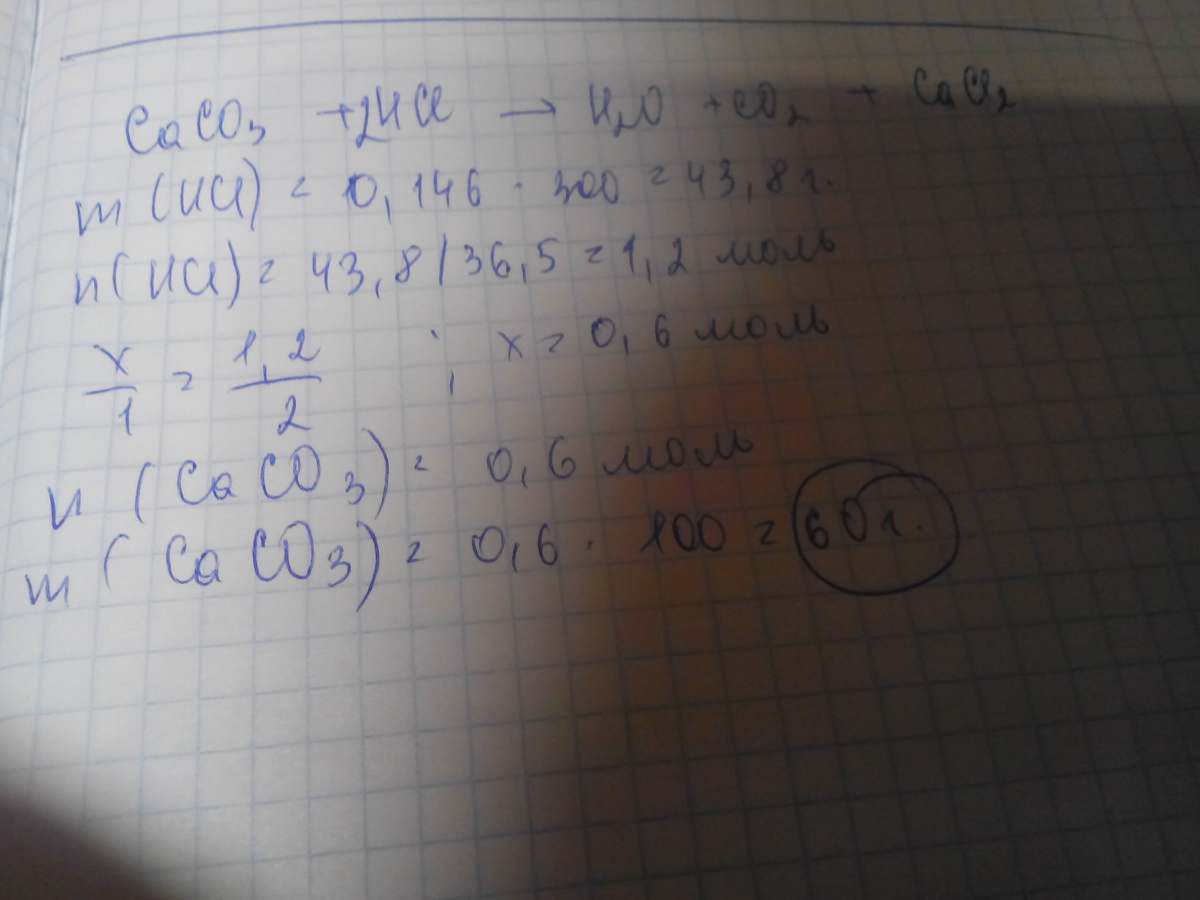 CaCO₃ + 2HCl → H₂O + CO₂ + CaCl₂
m (HCl) = 0,146 · 300 = 43,8 г.
n (HCl) = 43,8 / 36,5 = 1,2 моль
x/1 = 1,2/2 ; x = 0,6 моль
n (CaCO₃) = 0,6 моль
m (CaCO₃) = 0,6 · 100 = 60 г.